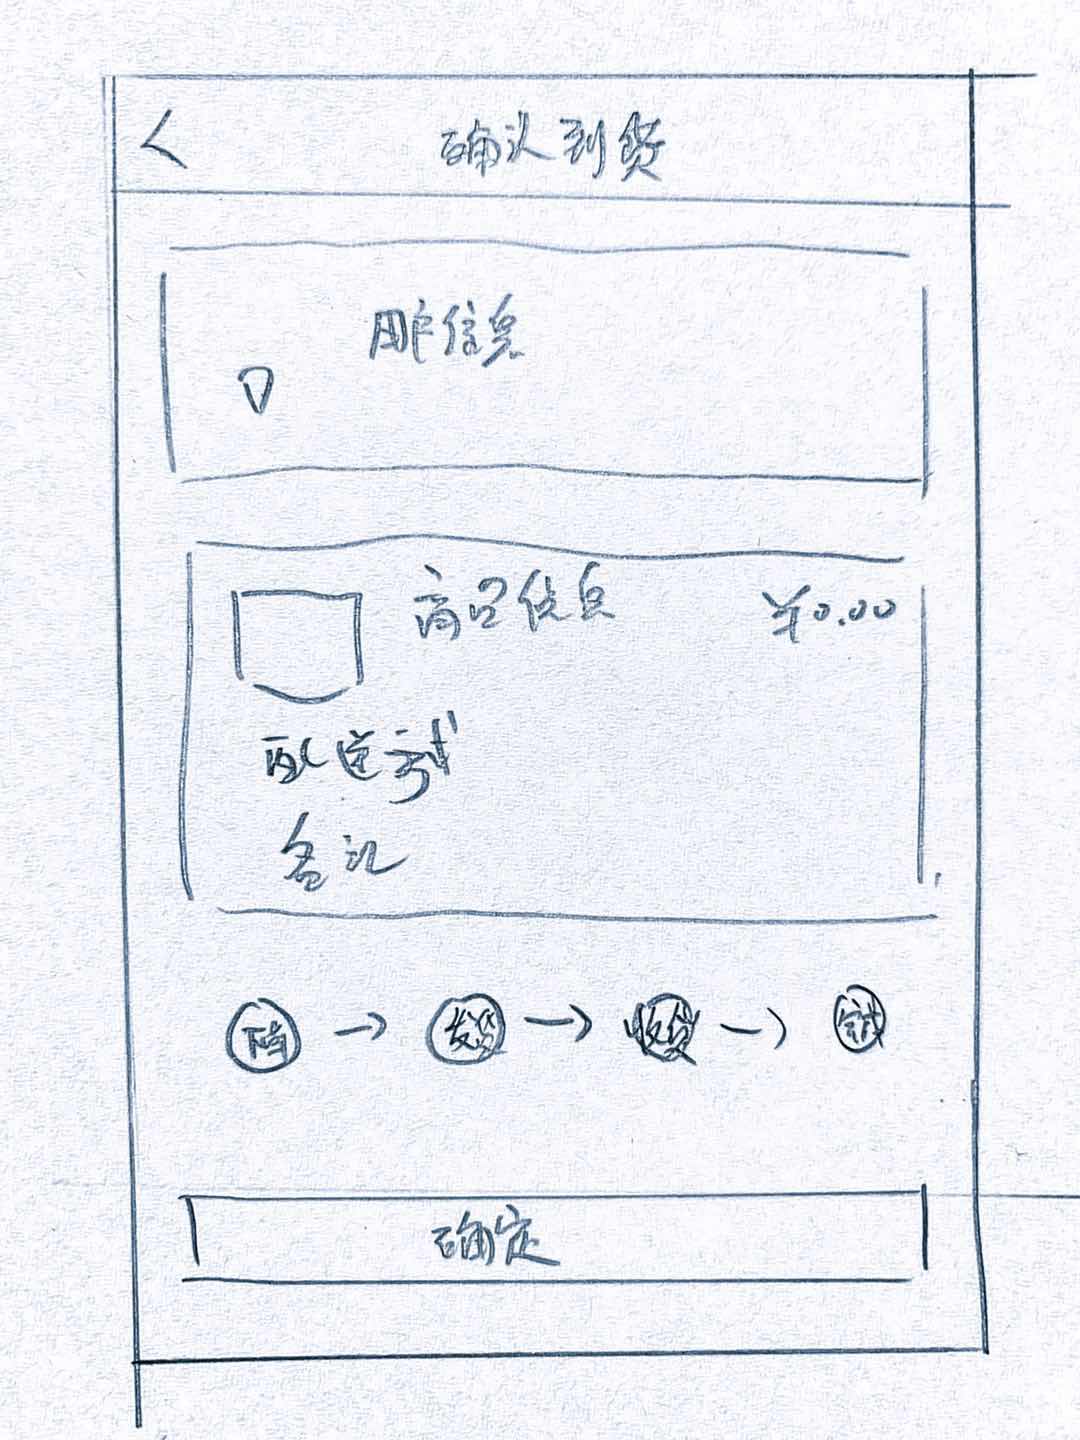 确认到货
用户信息
商品信息 ¥0.00
配送方式
备注
下单 → 发货 → 收货 → 完成
确定